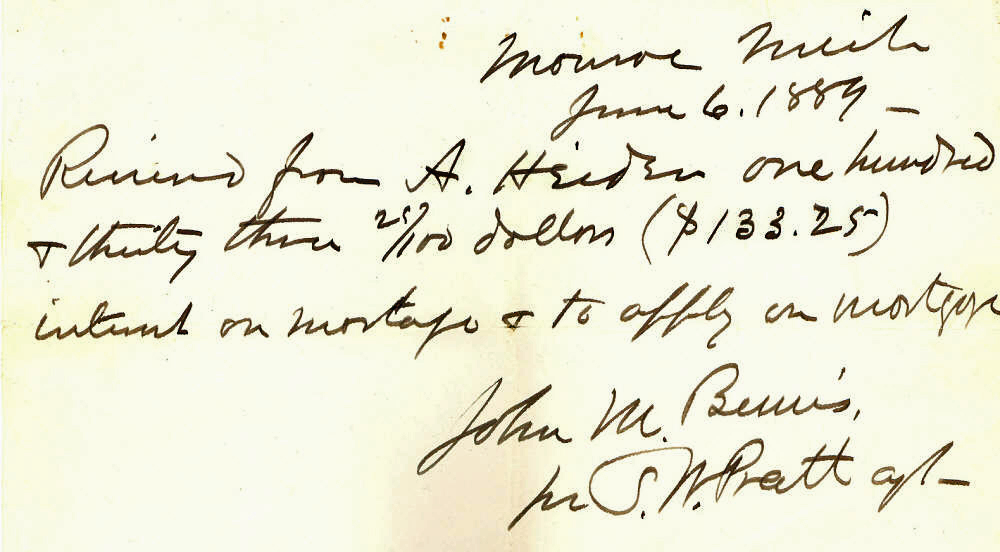 Monroe Mich
June 6. 1889 –
Received from A. Heiden one hundred
& thirty three 25/100 dollars ($133.25)
interest on mortage & to apply on mortgage
John M. Bemis,
per S. W. Pratt agt –